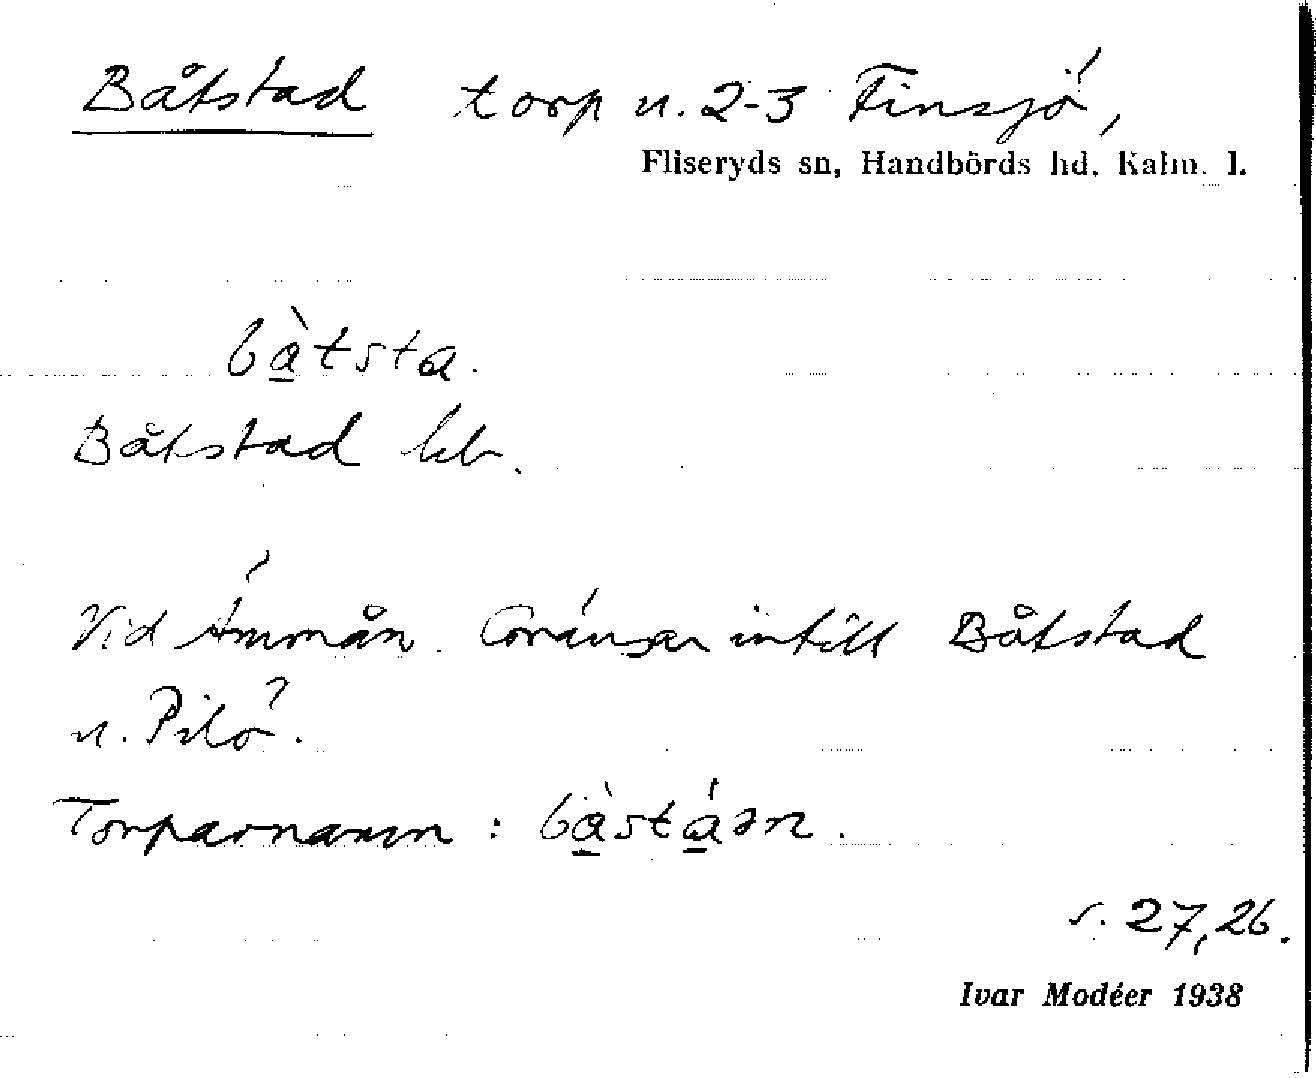 Båtstad torp u. 2-3 Finsjö,
Fliseryds sn, Handbörds hd. Kalm. l.
bàtsta.
Båtstad kb.
Vid Ämmån. Gränsar intill Båtstad
u. Pilö?.
Torparnamn : bàståən.
s. 27,26.
Ivar Modéer 1938